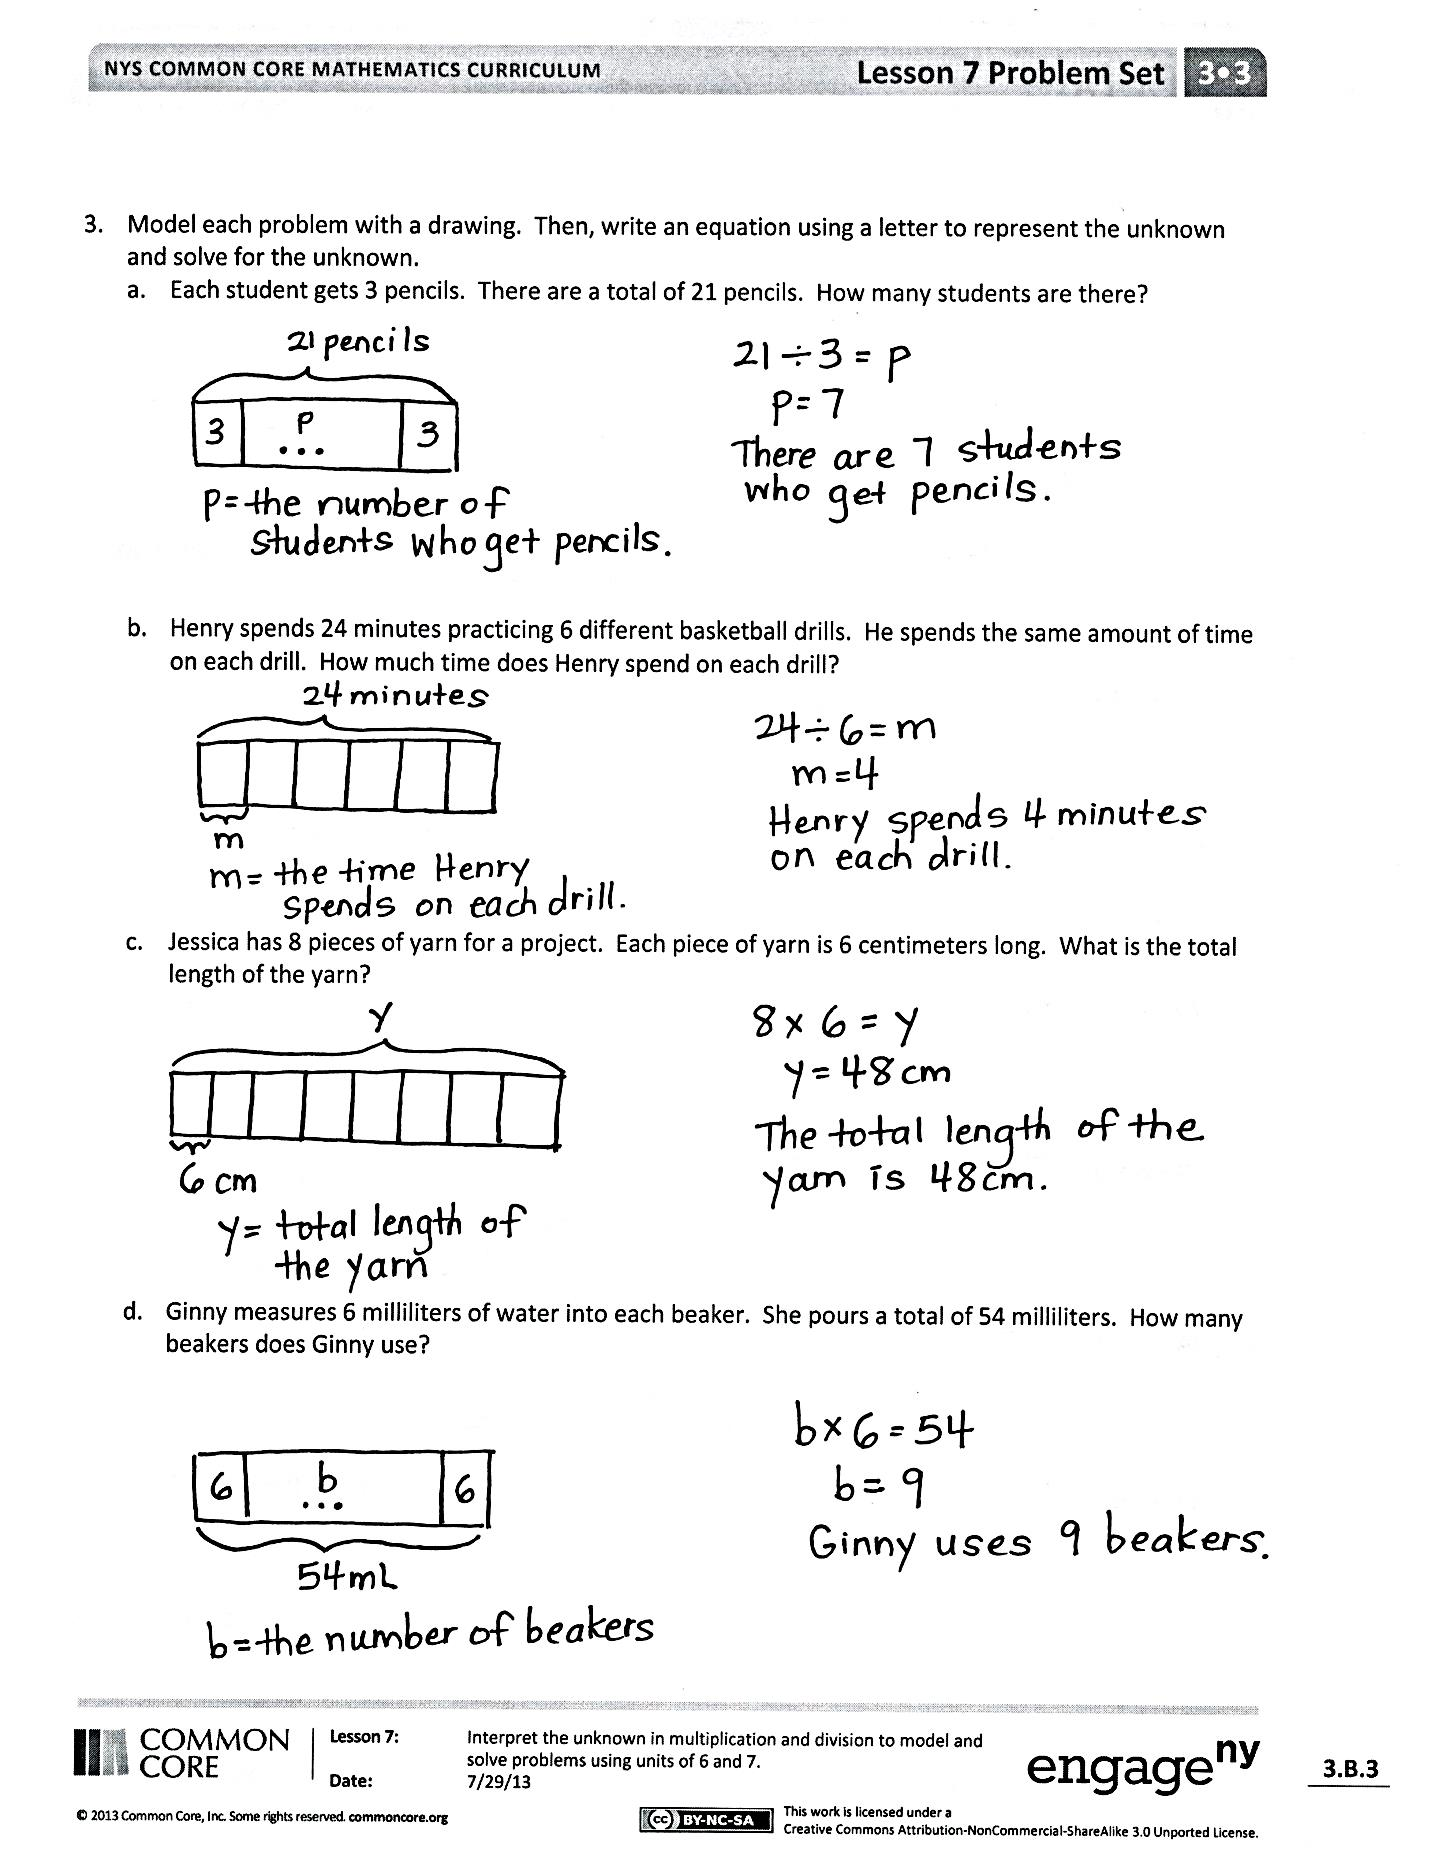 NYS COMMON CORE MATHEMATICS CURRICULUM
Lesson 7 Problem Set 3•3
3. Model each problem with a drawing. Then, write an equation using a letter to represent the unknown
and solve for the unknown.
a. Each student gets 3 pencils. There are a total of 21 pencils. How many students are there?
21 pencils
3 p ... 3
p=the number of
students who get pencils.
21÷3 = p
p=7
There are 7 students
who get pencils.
b. Henry spends 24 minutes practicing 6 different basketball drills. He spends the same amount of time
on each drill. How much time does Henry spend on each drill?
24 minutes
m
m= the time Henry
spends on each drill.
24÷6=m
m=4
Henry spends 4 minutes
on each drill.
c. Jessica has 8 pieces of yarn for a project. Each piece of yarn is 6 centimeters long. What is the total
length of the yarn?
y
6 cm
y= total length of
the yarn
8 x 6 = y
y=48cm
The total length of the
yarn is 48cm.
d. Ginny measures 6 milliliters of water into each beaker. She pours a total of 54 milliliters. How many
beakers does Ginny use?
6 b ... 6
54mL
b=the number of beakers
bx6=54
b=9
Ginny uses 9 beakers.
COMMON
CORE
Lesson 7:
Date:
Interpret the unknown in multiplication and division to model and
solve problems using units of 6 and 7.
7/29/13
engageny
3.B.3
© 2013 Common Core, Inc. Some rights reserved. commoncore.org
(cc) BY-NC-SA
This work is licensed under a
Creative Commons Attribution-NonCommercial-ShareAlike 3.0 Unported License.